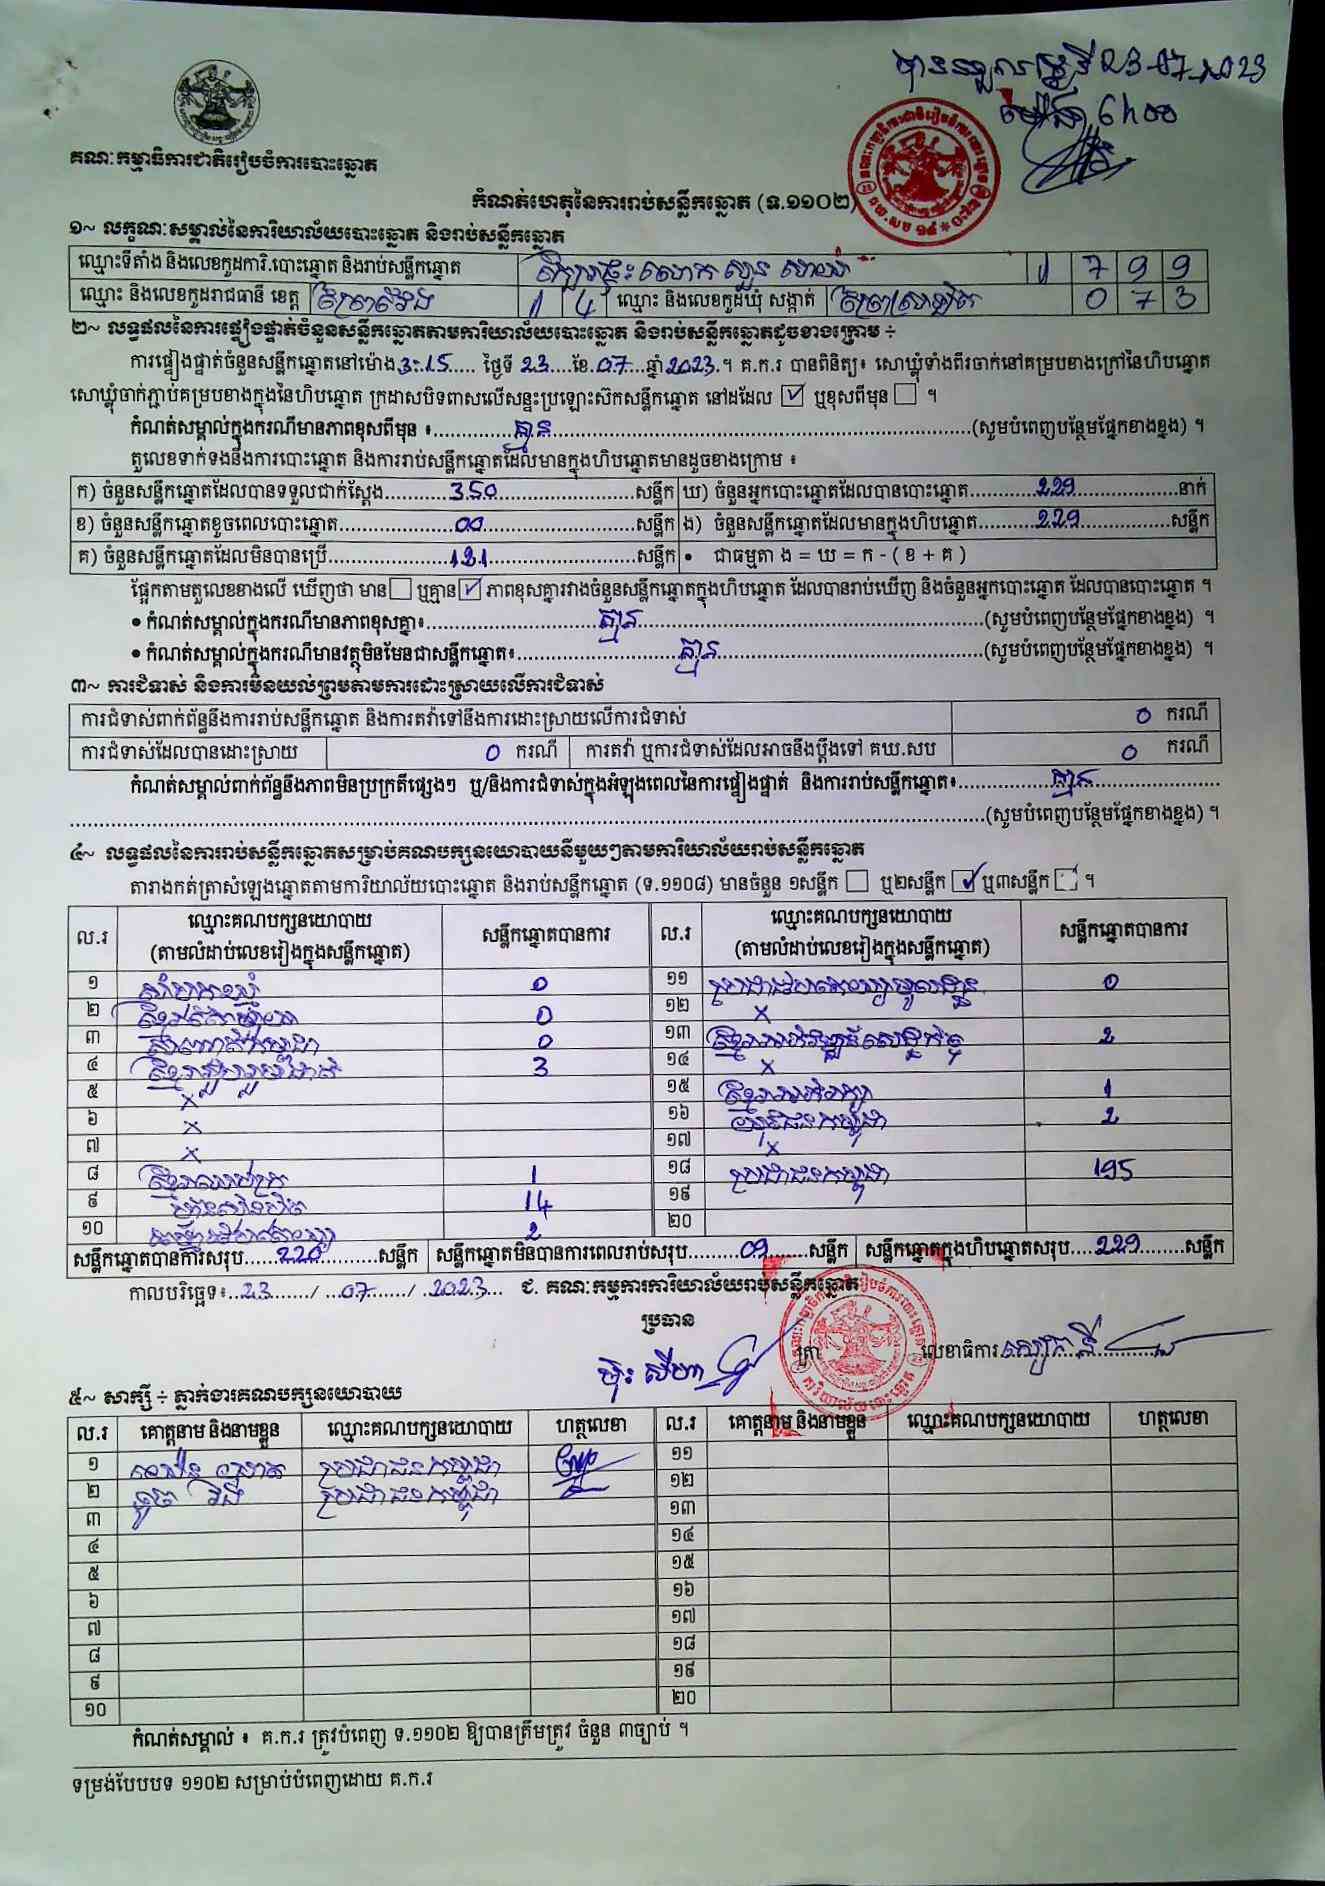 បានទទួលថ្ងៃទី 23-07-2023
ម៉ោង 6h00
គណៈកម្មាធិការជាតិរៀបចំការបោះឆ្នោត
កំណត់ហេតុនៃការរាប់សន្លឹកឆ្នោត (ទ.១១០២)
១~ លក្ខណៈសម្គាល់នៃការិយាល័យបោះឆ្នោត និងរាប់សន្លឹកឆ្នោត
ឈ្មោះទីតាំង និងលេខកូដការិ.បោះឆ្នោត និងរាប់សន្លឹកឆ្នោត 7 9 9
ឈ្មោះ និងលេខកូដរាជធានី ខេត្ត ព្រៃវែង 1 4 ឈ្មោះ និងលេខកូដឃុំ សង្កាត់ 0 7 3
២~ លទ្ធផលនៃការផ្ទៀងផ្ទាត់ចំនួនសន្លឹកឆ្នោតតាមការិយាល័យបោះឆ្នោត និងរាប់សន្លឹកឆ្នោតដូចខាងក្រោម ÷
ការផ្ទៀងផ្ទាត់ចំនួនសន្លឹកឆ្នោតនៅម៉ោង 3:15 ថ្ងៃទី 23 ខែ 07 ឆ្នាំ 2023 ។ គ.ក.រ បានពិនិត្យ៖ សោឃ្លុំទាំងពីរចាក់នៅគម្របខាងក្រៅនៃហិបឆ្នោត
សោឃ្លុំចាក់ភ្ជាប់គម្របខាងក្នុងនៃហិបឆ្នោត ក្រដាសបិទពាសលើសន្ទះប្រឡោះស៊កសន្លឹកឆ្នោត នៅដដែល ☑ ឬខុសពីមុន ☐ ។
កំណត់សម្គាល់ក្នុងករណីមានភាពខុសពីមុន ៖ គ្មាន (សូមបំពេញបន្ថែមផ្នែកខាងខ្នង) ។
តួលេខទាក់ទងនឹងការបោះឆ្នោត និងការរាប់សន្លឹកឆ្នោតដែលមានក្នុងហិបឆ្នោតមានដូចខាងក្រោម ៖
ក) ចំនួនសន្លឹកឆ្នោតដែលបានទទួលជាក់ស្តែង 350 សន្លឹក ឃ) ចំនួនអ្នកបោះឆ្នោតដែលបានបោះឆ្នោត 229 នាក់
ខ) ចំនួនសន្លឹកឆ្នោតខូចពេលបោះឆ្នោត 00 សន្លឹក ង) ចំនួនសន្លឹកឆ្នោតដែលមានក្នុងហិបឆ្នោត 229 សន្លឹក
គ) ចំនួនសន្លឹកឆ្នោតដែលមិនបានប្រើ 121 សន្លឹក • ជាធម្មតា ង = ឃ = ក - ( ខ + គ )
ផ្អែកតាមតួលេខខាងលើ ឃើញថា មាន ☐ ឬគ្មាន ☑ ភាពខុសគ្នារវាងចំនួនសន្លឹកឆ្នោតក្នុងហិបឆ្នោត ដែលបានរាប់ឃើញ និងចំនួនអ្នកបោះឆ្នោត ដែលបានបោះឆ្នោត ។
• កំណត់សម្គាល់ក្នុងករណីមានភាពខុសគ្នា៖ គ្មាន (សូមបំពេញបន្ថែមផ្នែកខាងខ្នង) ។
• កំណត់សម្គាល់ក្នុងករណីមានវត្ថុមិនមែនជាសន្លឹកឆ្នោត៖ គ្មាន (សូមបំពេញបន្ថែមផ្នែកខាងខ្នង) ។
៣~ ការជំទាស់ និងការមិនយល់ព្រមតាមការដោះស្រាយលើការជំទាស់
ការជំទាស់ពាក់ព័ន្ធនឹងការរាប់សន្លឹកឆ្នោត និងការតវ៉ាទៅនឹងការដោះស្រាយលើការជំទាស់ 0 ករណី
ការជំទាស់ដែលបានដោះស្រាយ 0 ករណី ការតវ៉ា ឬការជំទាស់ដែលអាចនឹងប្តឹងទៅ គឃ.សប 0 ករណី
កំណត់សម្គាល់ពាក់ព័ន្ធនឹងភាពមិនប្រក្រតីផ្សេងៗ ឬ/និងការជំទាស់ក្នុងអំឡុងពេលនៃការផ្ទៀងផ្ទាត់ និងការរាប់សន្លឹកឆ្នោត៖ គ្មាន
(សូមបំពេញបន្ថែមផ្នែកខាងខ្នង) ។
៤~ លទ្ធផលនៃការរាប់សន្លឹកឆ្នោតសម្រាប់គណបក្សនយោបាយនីមួយៗតាមការិយាល័យរាប់សន្លឹកឆ្នោត
តារាងកត់ត្រាសំឡេងឆ្នោតតាមការិយាល័យបោះឆ្នោត និងរាប់សន្លឹកឆ្នោត (ទ.១១០៨) មានចំនួន ១សន្លឹក ☐ ឬ២សន្លឹក ☑ ឬ៣សន្លឹក ☐ ។
ល.រ ឈ្មោះគណបក្សនយោបាយ សន្លឹកឆ្នោតបានការ ល.រ ឈ្មោះគណបក្សនយោបាយ សន្លឹកឆ្នោតបានការ
(តាមលំដាប់លេខរៀងក្នុងសន្លឹកឆ្នោត) (តាមលំដាប់លេខរៀងក្នុងសន្លឹកឆ្នោត)
១ 0 ១១ 0
២ 0 ១២ x
៣ 0 ១៣ 2
៤ 3 ១៤ x
៥ x ១៥ 1
៦ x ១៦ 2
៧ x ១៧ x
៨ 1 ១៨ ប្រជាជនកម្ពុជា 195
៩ 14 ១៩
១០ 2 ២០
សន្លឹកឆ្នោតបានការសរុប 220 សន្លឹក សន្លឹកឆ្នោតមិនបានការពេលរាប់សរុប 09 សន្លឹក សន្លឹកឆ្នោតក្នុងហិបឆ្នោតសរុប 229 សន្លឹក
កាលបរិច្ឆេទ៖ 23 / 07 / 2023 ជ. គណៈកម្មការការិយាល័យរាប់សន្លឹកឆ្នោត
ប្រធាន
ត្រា លេខាធិការ
៥~ សាក្សី ÷ ភ្នាក់ងារគណបក្សនយោបាយ
ល.រ គោត្តនាម និងនាមខ្លួន ឈ្មោះគណបក្សនយោបាយ ហត្ថលេខា ល.រ គោត្តនាម និងនាមខ្លួន ឈ្មោះគណបក្សនយោបាយ ហត្ថលេខា
១ ប្រជាជនកម្ពុជា ១១
២ ប្រជាជនកម្ពុជា ១២
៣ ១៣
៤ ១៤
៥ ១៥
៦ ១៦
៧ ១៧
៨ ១៨
៩ ១៩
១០ ២០
កំណត់សម្គាល់ ៖ គ.ក.រ ត្រូវបំពេញ ទ.១១០២ ឱ្យបានត្រឹមត្រូវ ចំនួន ៣ច្បាប់ ។
ទម្រង់បែបបទ ១១០២ សម្រាប់បំពេញដោយ គ.ក.រ